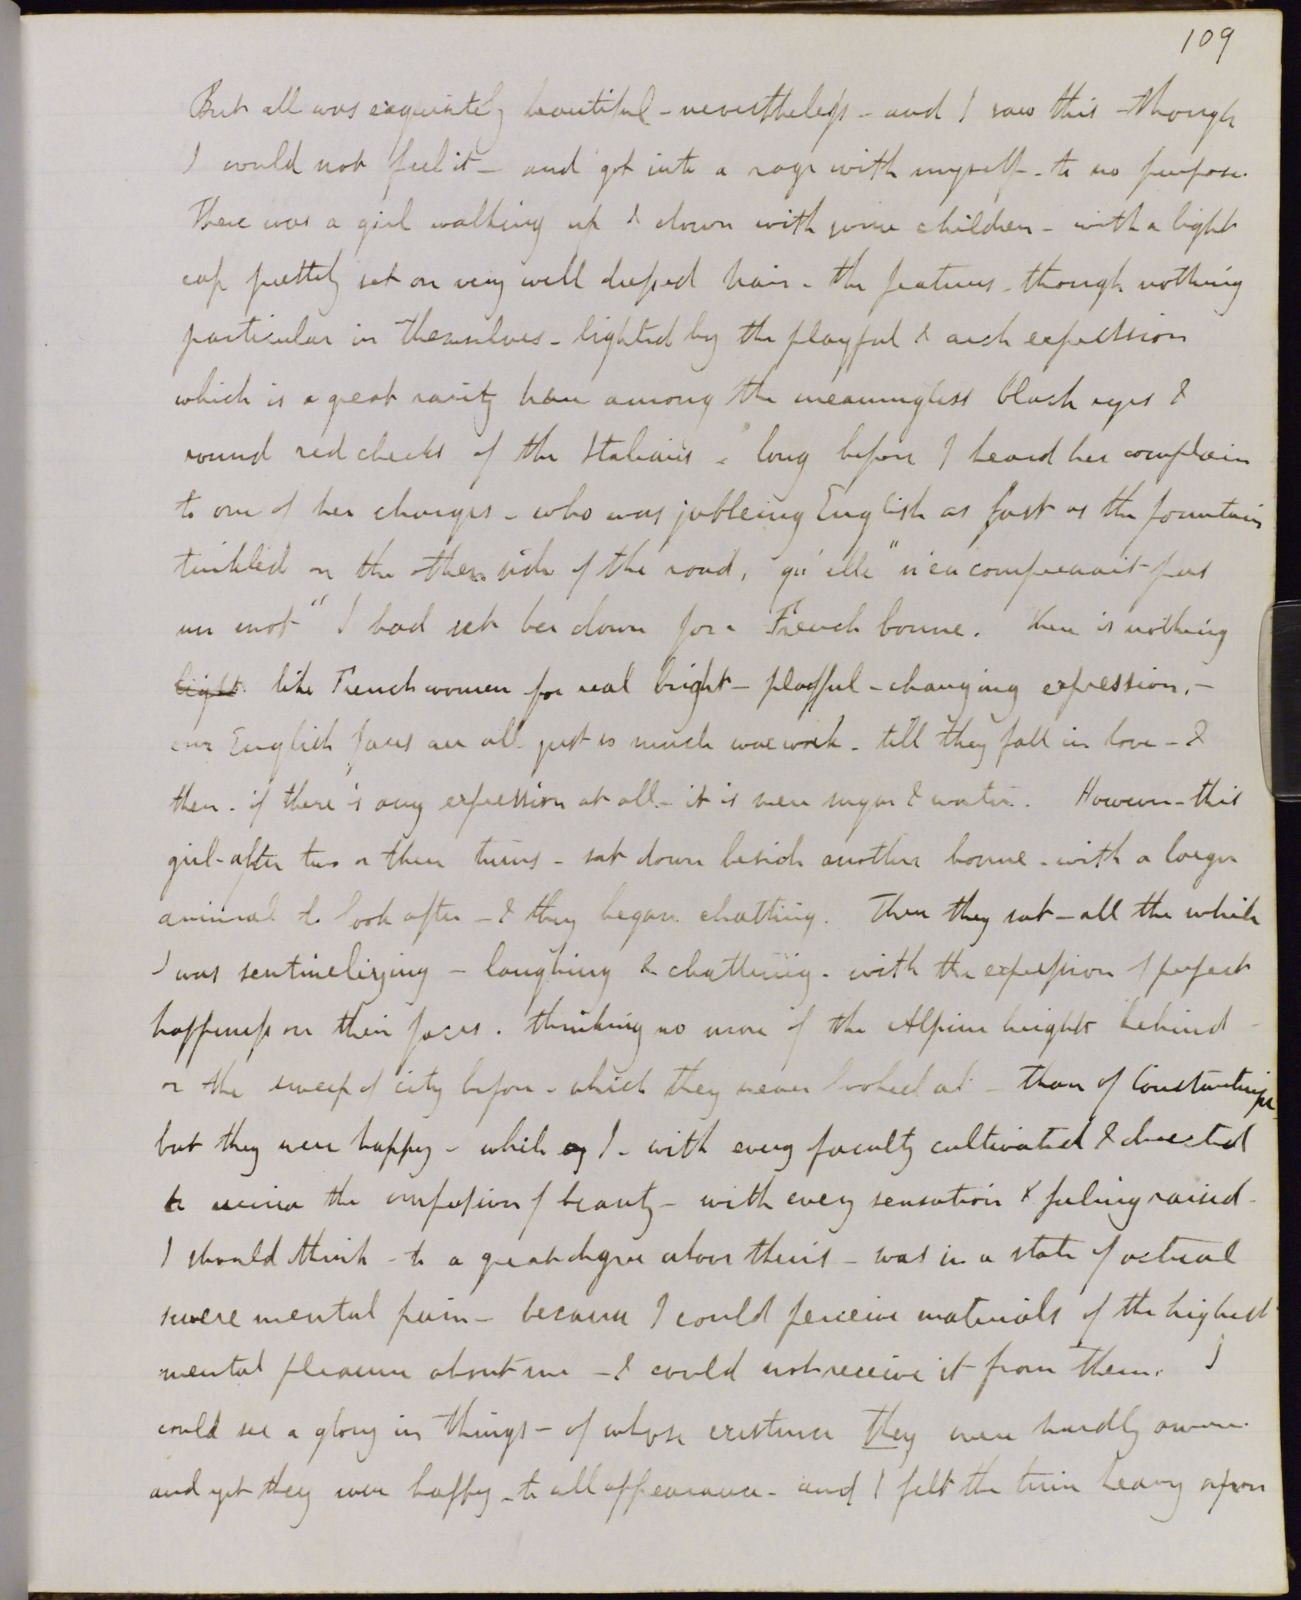 109
But all was exquisitely beautiful - nevertheless - and I saw this - though
I could not feel it - and got into a rage with myself - to no purpose.
There was a girl walking up & down with some children - with a light
cap prettily set on very well dressed hair - the features - though nothing
particular in themselves - lighted by the playful & arch expression
which is a great rarity here among the meaningless black eyes &
round red cheeks of the Italians - long before I heard her complain
to one of her charges - who was jabbering English as fast as the fountain
tinkled on the other side of the road, qu'elle "n'en comprenait pas
un mot" I had set her down for a French bonne. There is nothing
light like French women for real bright - playful - changing expression, -
our English faces are all just so much waxwork - till they fall in love - &
then - if there is any expression at all - it is mere sugar & water. However - this
girl - after two or three turns - sat down beside another bonne - with a larger
animal to look after - & they began chatting. There they sat - all the while
I was sentinelizing - laughing & chattering - with the expression of perfect
happiness on their faces. thinking no more of the Alpine heights behind -
or the sweep of city before - which they never looked at - than of Constantinople
but they were happy - while I - with every faculty cultivated & directed
to receive the impression of beauty - with every sensation & feeling raised -
I should think - to a great degree above theirs - was in a state of actual
severe mental pain - because I could perceive materials of the highest
mental pleasure about me - & could not receive it from them. I
could see a glory in things - of whose existence they were hardly aware.
and yet they were happy - to all appearance - and I felt the time heavy upon